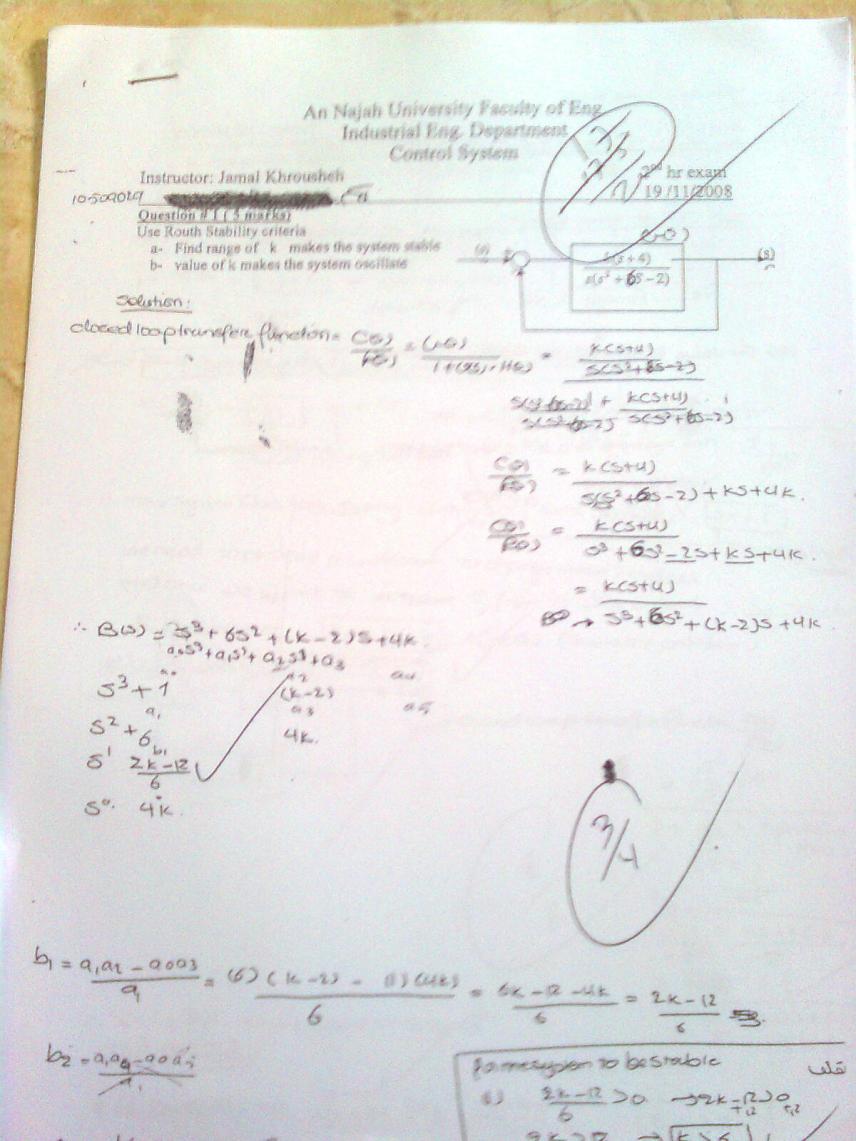 An Najah University Faculty of Eng
Industrial Eng. Department
Control System
Instructor: Jamal Khrousheh
2nd hr exam
10509029
19 /11/2008
Question # 1 ( 5 marks)
Use Routh Stability criteria
a- Find range of k makes the system stable
b- value of k makes the system oscillate
k(s+4)
s(s² +6s-2)
(s)
Solution:
closed loop transfer function = C(s)/R(s) = G(s)/1+G(s).H(s) = k(s+4)/s(s²+6s-2)
s(s²+6s-2)/s(s²+6s-2) + k(s+4)/s(s²+6s-2) . 1
C(s)/R(s) = k(s+4)/s(s²+6s-2)+ks+4k.
C(s)/R(s) = k(s+4)/s³+6s²-2s+ks+4k.
= k(s+4)/s³+6s²+(k-2)s+4k
∴ B(s) = s³+6s²+(k-2)s+4k.
a₀s³+a₁s²+a₂s¹+a₃
a₀ a₂ a₄
s³+1 (k-2)
a₁ a₃ a₅
s²+6 4k.
b₁
s¹ 2k-12/6
s⁰ 4k.
3/4
b₁ = a₁a₂-a₀a₃/a₁ = (6)(k-2)-(1)(4k)/6 = 6k-12-4k/6 = 2k-12/6
b₂ = a₁a₄-a₀a₅/a₁
for the system to be stable
2k-12/6 >0 → 2k-12>0
+12 +12
2k>12 → k>6